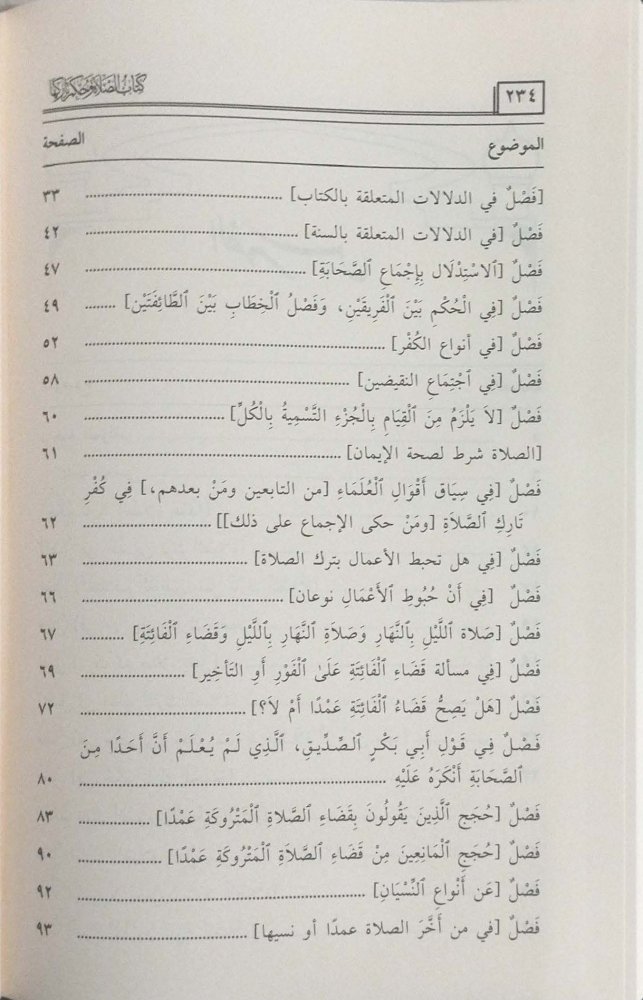 كتاب الصلاة وحكم تاركها
٢٣٤
الموضوع الصفحة
[فَصْلٌ في الدلالات المتعلقة بالكتاب] ................ ٣٣
فَصْلٌ [في الدلالات المتعلقة بالسنة] ................ ٤٢
فَصْلٌ [ٱلاسْتِدْلَال بِإِجْمَاعِ ٱلصَّحَابَةِ] ................ ٤٧
فَصْلٌ [فِي ٱلْحُكْمِ بَيْنَ ٱلْفَرِيقَيْنِ، وَفَصْلُ ٱلْخِطَابِ بَيْنَ ٱلطَّائِفَتَيْنِ] ........ ٤٩
فَصْلٌ [في أنواع الكُفْر] ................ ٥٢
فَصْلٌ [فِي ٱجْتِمَاعِ النقيضين] ................ ٥٨
فَصْلٌ [لاَ يَلْزَمُ مِنَ ٱلْقِيَامِ بِالْجُزْءِ التَّسْمِيةُ بِالْكُلِّ] ................ ٦٠
[الصلاة شرط لصحة الإيمان] ................ ٦١
فَصْلٌ [فِي سِيَاق أَقْوَالِ ٱلْعُلَمَاءِ [من التابعين ومَنْ بعدهم،] فِي كُفْرِ
تَارِكِ ٱلصَّلاَةِ [ومَنْ حكى الإجماع على ذلك]] ................ ٦٢
فَصْلٌ [فِي هل تحبط الأعمال بترك الصلاة] ................ ٦٣
فَصْلٌ [فِي أَنْ حُبُوطِ ٱلأَعْمَالِ نوعان] ................ ٦٦
فَصْلٌ [صَلاة اللَّيْلِ بِالنَّهَارِ وَصَلاَةِ النَّهَارِ بِٱللَّيْلِ وَقَضَاءِ ٱلْفَائِتَةِ] ........... ٦٧
فَصْلٌ [فِي مسألة قَضَاءِ ٱلْفَائِتَةِ عَلَىٰ ٱلْفَوْرِ أَو التَأخِير] ................ ٦٩
فَصْلٌ [هَلْ يَصِحُّ قَضَاءُ ٱلْفَائِتَةِ عَمْدًا أَمْ لاَ؟] ................ ٧٢
فَصْلٌ فِي قَوْلِ أَبِي بَكْرٍ ٱلصِّدِّيقِ، ٱلَّذِي لَمْ يُعْلَمْ أَنَّ أَحَدًا مِنَ
ٱلصَّحَابَةِ أَنْكَرَهُ عَلَيْهِ ................ ٨٠
فَصْلٌ [حُجَج ٱلَّذِينَ يَقُولُونَ بِقَضَاءِ ٱلصَّلاةِ ٱلْمَتْرُوكَةِ عَمْدًا] ................ ٨٣
فَصْلٌ [حُجَج ٱلْمَانِعِينَ مِنْ قَضَاءِ ٱلصَّلاَةِ ٱلْمَتْرُوكَةِ عَمْدًا] ................ ٩٠
فَصْلٌ [عَن أَنْوَاعِ ٱلنِّسْيَانِ] ................ ٩٢
فَصْلٌ [في من أَخَّرَ الصلاة عمدًا أو نسيها] ................ ٩٣